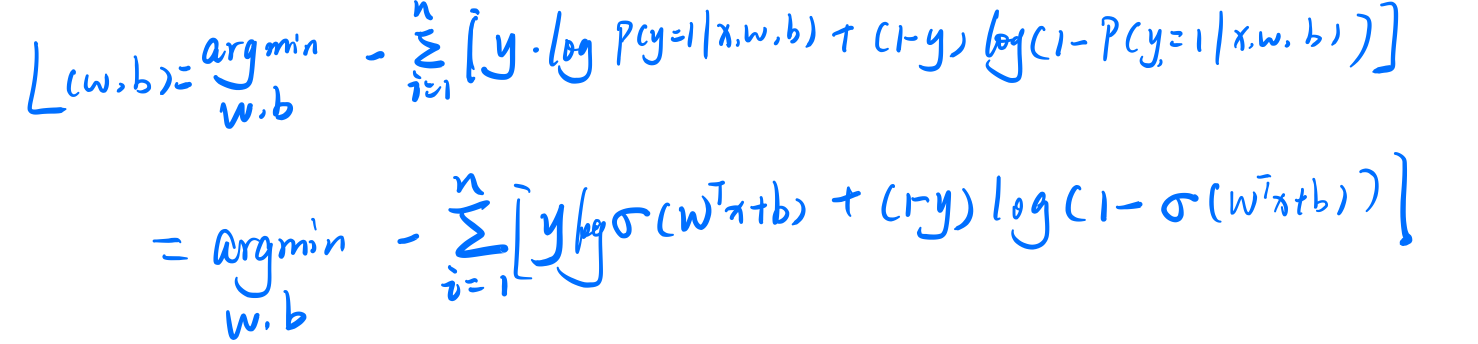 L(w,b)= argmin w,b - ∑ i=1 n [y·log P(y=1|x,w,b) + (1-y) log(1-P(y=1|x,w,b))]
= argmin w,b - ∑ i=1 n [y log σ(wᵀx+b) + (1-y) log(1-σ(wᵀx+b))]